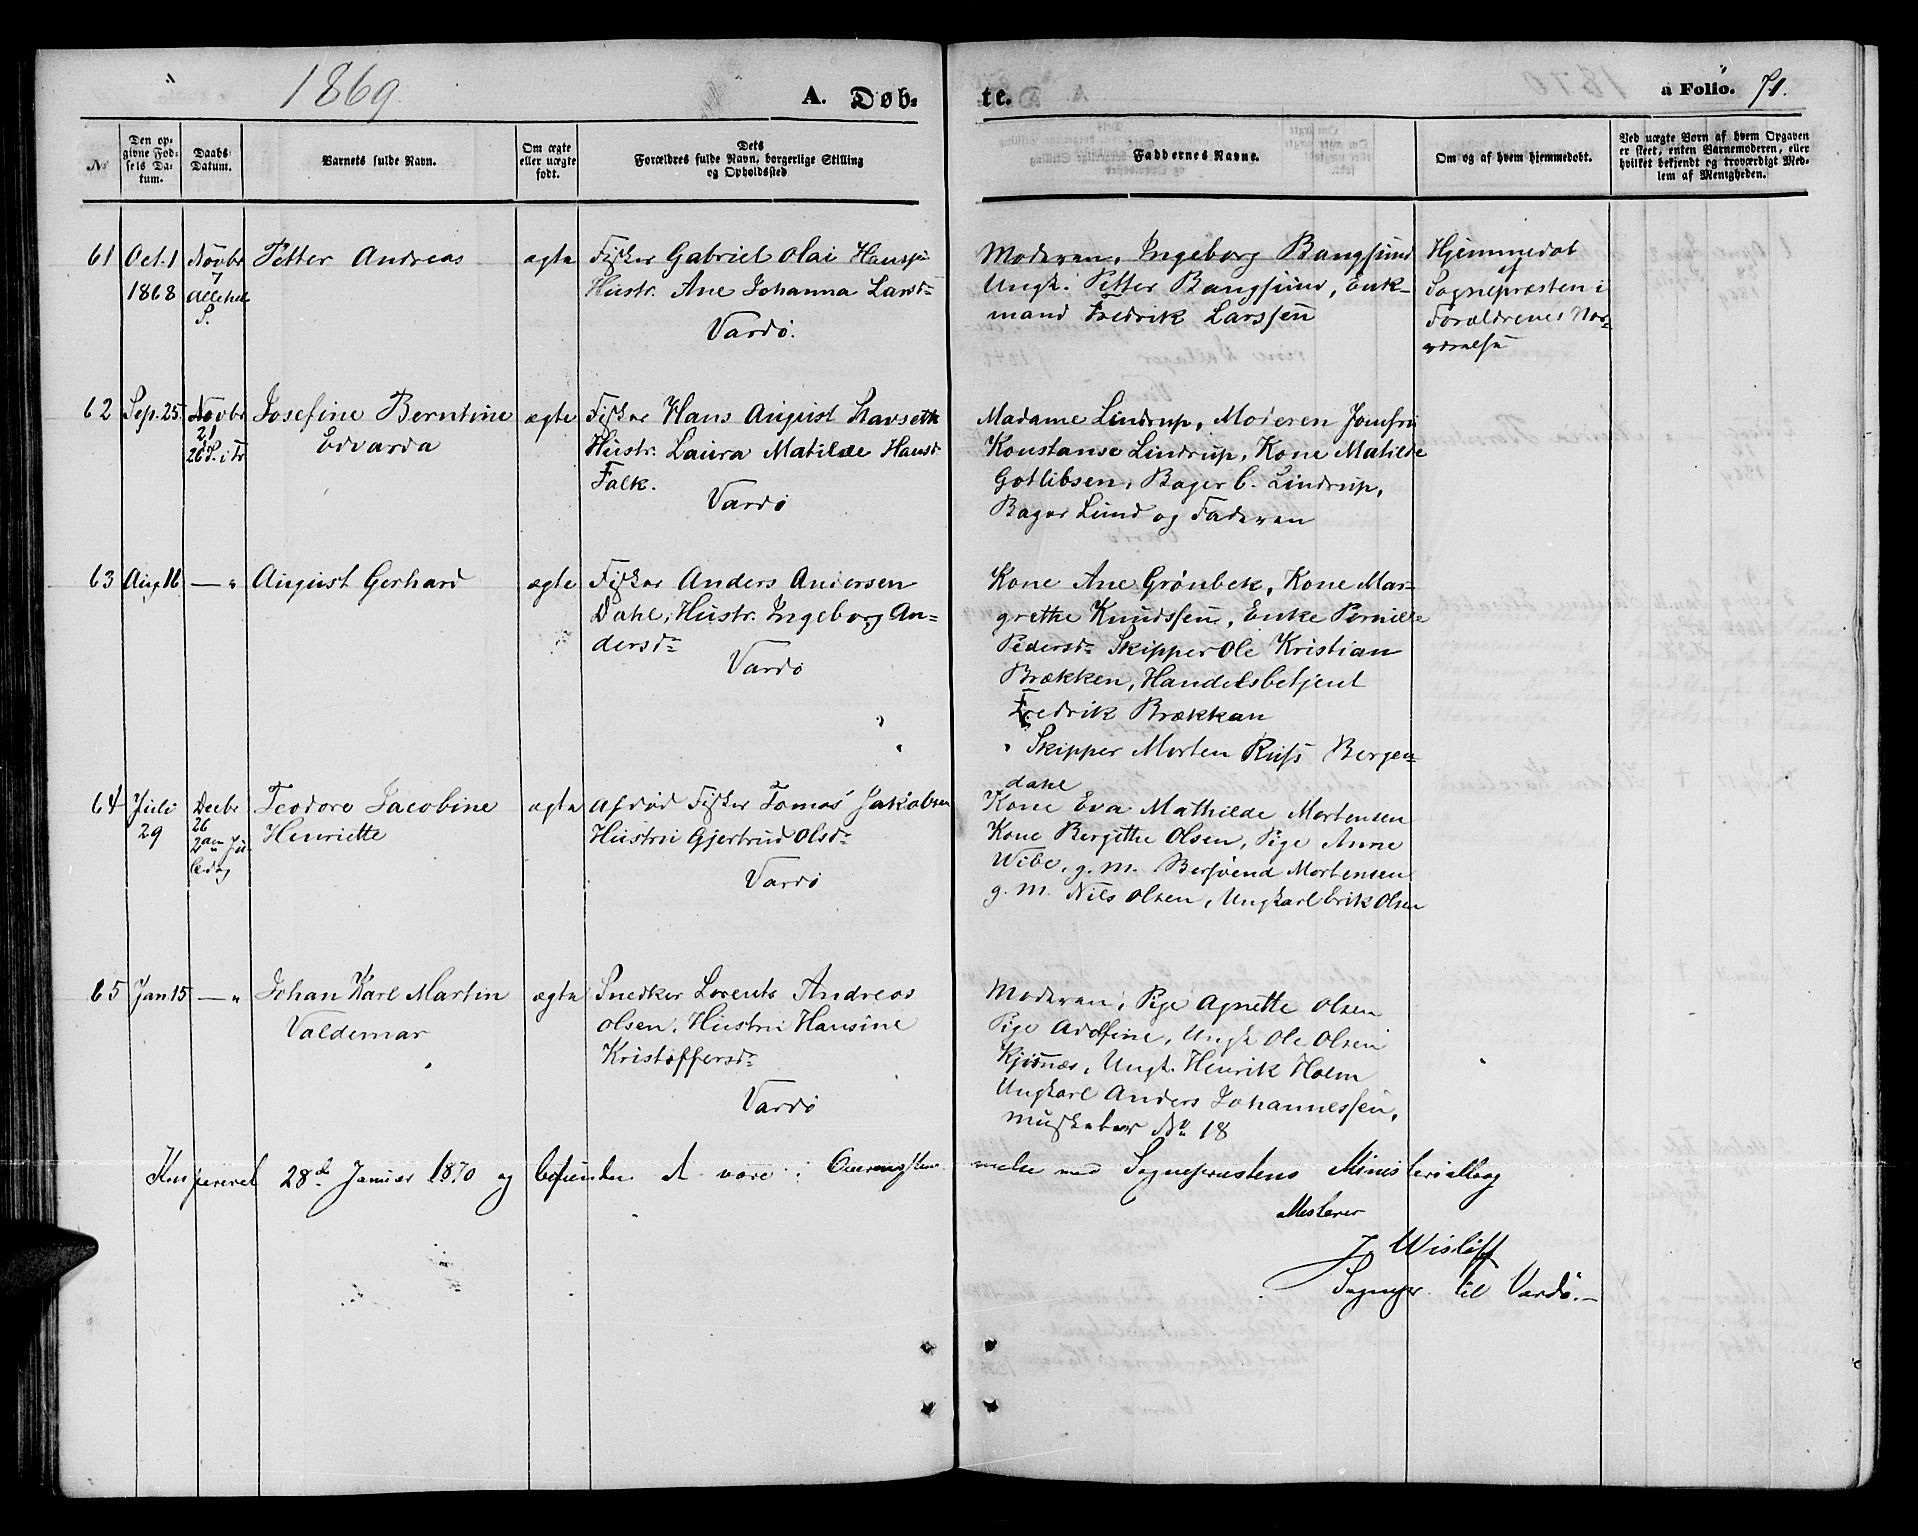 1869
A. Døb-
te.
a Folio. 71.
No
Den op-
givne Fød-
sels Da-
tum.
Daabs
Datum.
Barnets fulde Navn.
Om ægte
eller uægte
født.
Dets
Forældres fulde Navn, borgerlige Stilling
og Opholdssted
Faddernes Navne.
Om og af hvem hjemmedøbt.
Ved uægte Børn af hvem Opgaven
er skeet, enten Barnemoderen, eller
hvilket bekjendt og troværdigt Med-
lem af Menigheden.
61 Oct. 1 Novbr Petter Andreas ægte Fisker Gabriel Olai Hanssen
1868 7 Allehel. S. Hustr. Ane Johanna Larsdr
Vardø.
Moderen, Ingeborg Bangsund
Ungk. Petter Bangsund, Enk-
mand Fredrik Larssen
Hjemmedøbt
af
Sognepræsten i
Forældrenes Nær-
værelse
62 Sep. 25 Novbr Josefine Berntine ægte Fisker Hans August
21 Edvarda Hustr. Laura Matilde Hansdr
26 S. i Tr. Falk.
Vardø
Madame Lindrup, Moderen Jomfru
Konstanse Lindrup, Kone Matilde
Gotlibsen, Bager C. Lindrup,
Bager Lund og Faderen
63 Aug 16 — " August Gerhard ægte Fisker Anders Andersen
Dahl, Hustr. Ingeborg An-
dersdr
Vardø
Kone Ane Grønbek, Kone Mar-
grethe Knudssen, Enke Pernille
Pedersdr Skipper Ole Kristian
Brækken, Handelsbetjent
Fredrik Brækkan
Skipper Morten Russ Bergen-
dahl
64 Juli Decbr Teodore Jacobine ægte Afdød Fisker Tomas Jakobsen
29 26 Henriette Hustru Gjertrud Olsdr
2den Ju-
ledag
Vardø
Kone Eva Mathilde Mortensen
Kone Bergithe Olsen, Pige Anne
Wibe, g. m. Bersvend Mortensen
g. m. Nils Olsen, Ungkarl Erik Olsen
65 Jan 15 — " Johan Karl Martin ægte Snedker Lorents Andreas
Valdemar Olsen, Hustru Hansine
Kristoffersdr
Vardø
Moderen, Pige Agnette Olsen
Pige Adolfine, Ungk Ole Olsen
Kjosnæs, Ungk. Henrik Holm
Ungkarl Anders Johannessen,
Musketer No 18
Konfereret 28de Januar 1870 og befunden at være i Overensstem-
melse med Sognepræstens Ministerialbog
Attesterer
J. Wisløff
Sognepr. til Vardø.—